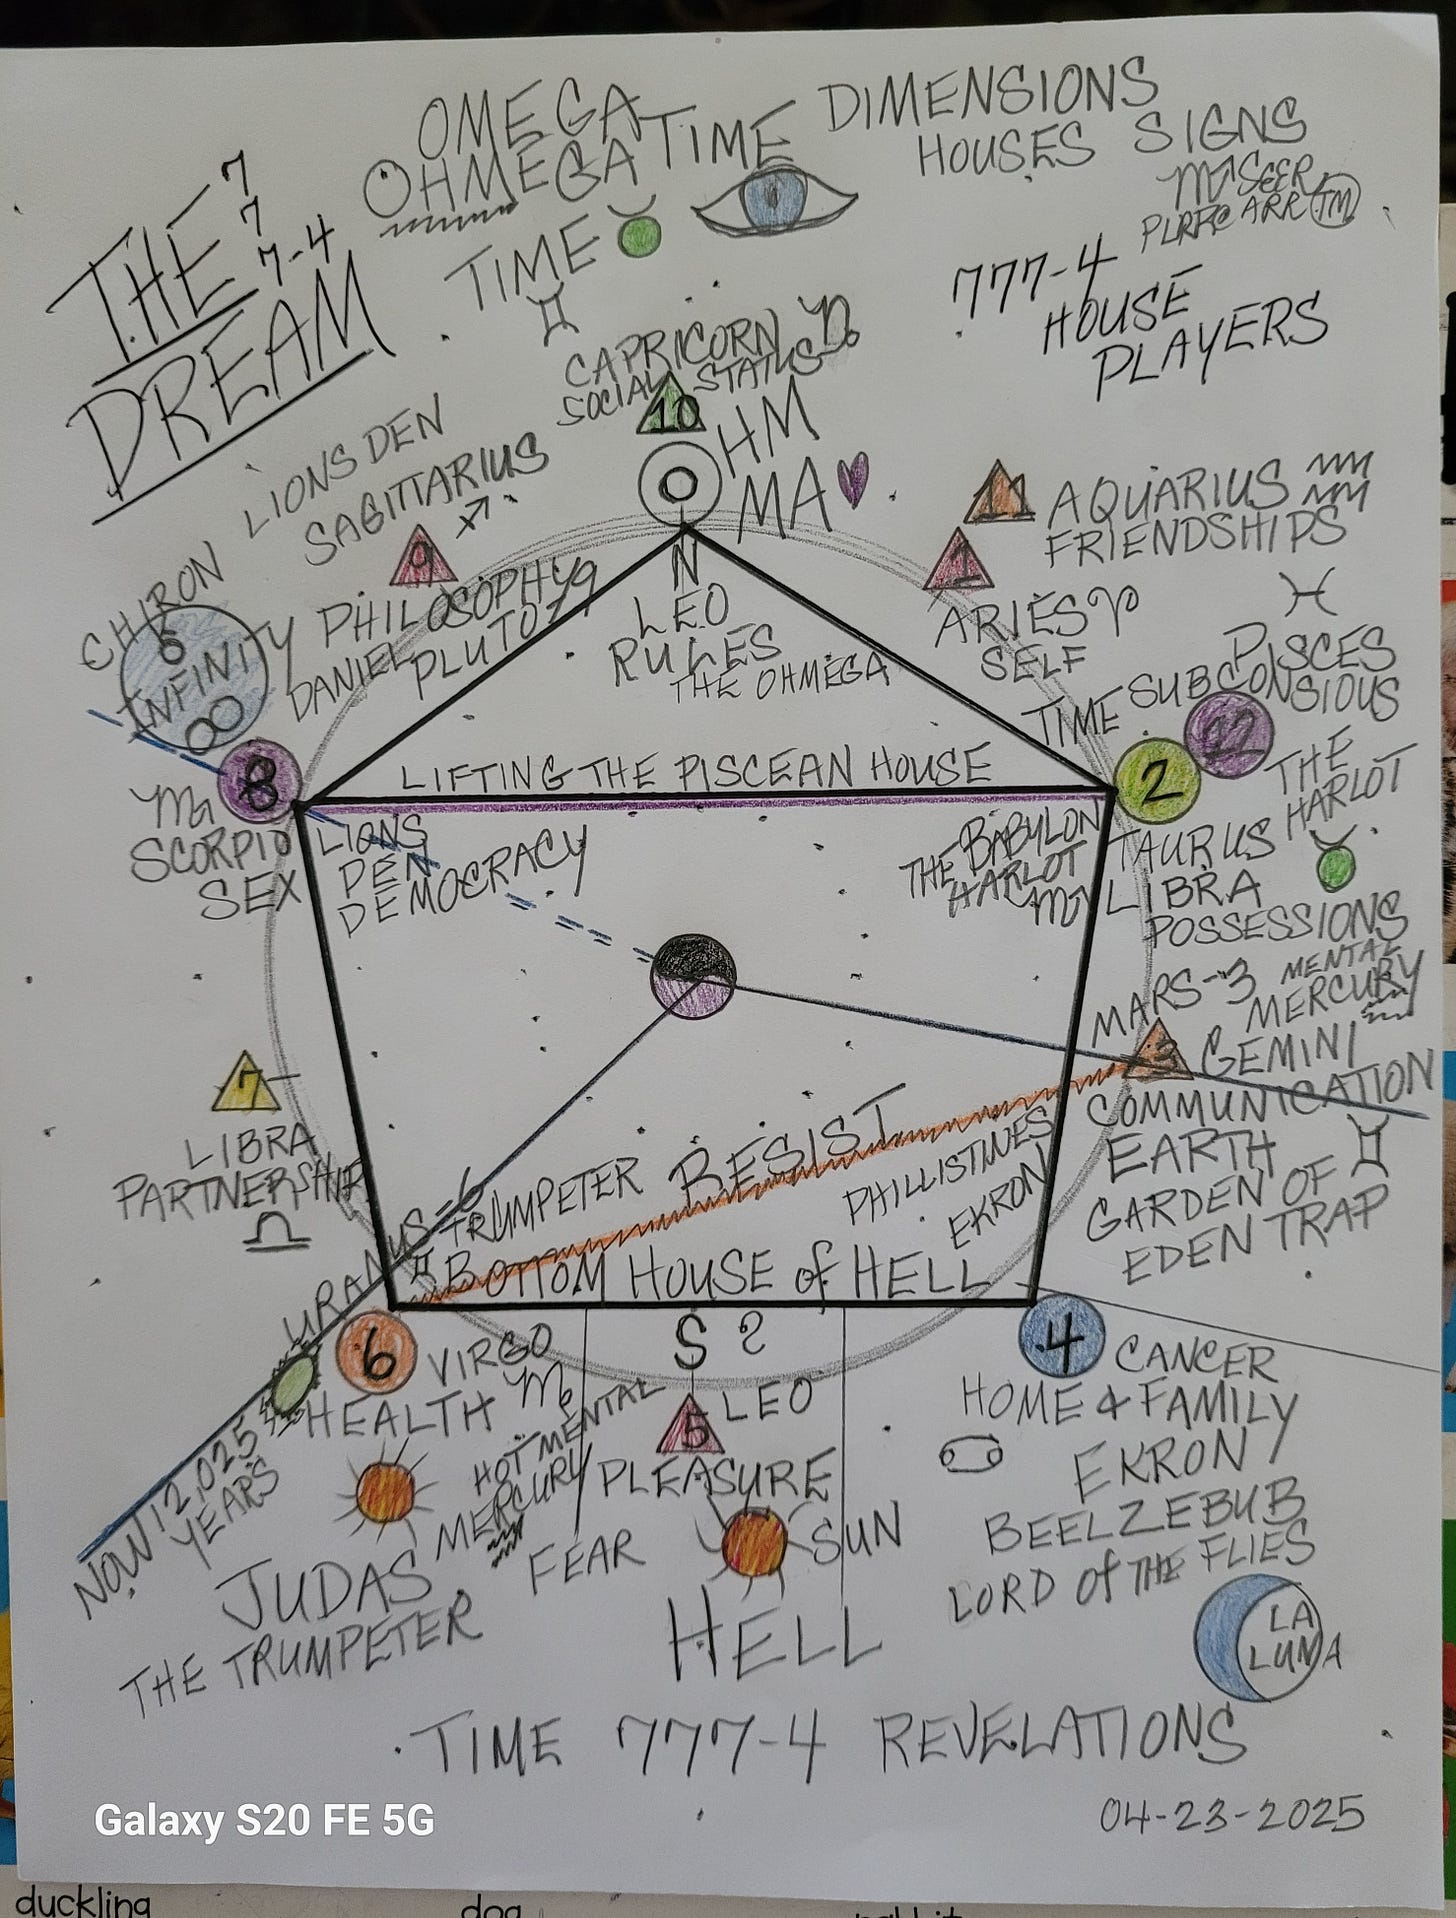 OMEGA
OHMEGA TIME
DIMENSIONS
HOUSES SIGNS
SEER
ARR TM
THE 7
7
7-4
DREAM
TIME
♊
777-4
HOUSE
PLAYERS
CAPRICORN
SOCIAL STATUS
10
OHM
MA
LIONS DEN
SAGITTARIUS
9
PHILOSOPHY
DANIEL PLUTO
11 AQUARIUS
FRIENDSHIPS
1
ARIES ♈
SELF
♓
PISCES
SUBCONSIOUS
TIME
12
2
THE
HARLOT
CHIRON
6
INFINITY
∞
8
♏
SCORPIO
SEX
N
LEO
RULES
THE OHMEGA
LIFTING THE PISCEAN HOUSE
LIONS
DEMOCRACY
THE BABYLON
HARLOT
TAURUS
LIBRA
POSSESSIONS
MARS-3 MENTAL
MERCURY
3 GEMINI
COMMUNICATION
EARTH ♊
GARDEN OF
EDEN TRAP
7
LIBRA
PARTNERSHIP
♎
URANUS-6
TRUMPETER RESIST
PHILLISTINES
EKRON
BOTTOM HOUSE of HELL
S ?
6 VIRGO
HEALTH ♍
HOT MENTAL
MERCURY
5 LEO
PLEASURE
SUN
FEAR
HELL
4 CANCER
HOME & FAMILY
♋ EKRON
BEELZEBUB
LORD of THE FLIES
LA
LUNA
NOW 12,025
YEARS
JUDAS
THE TRUMPETER
TIME 777-4 REVELATIONS
04-23-2025
Galaxy S20 FE 5G
duckling
dog